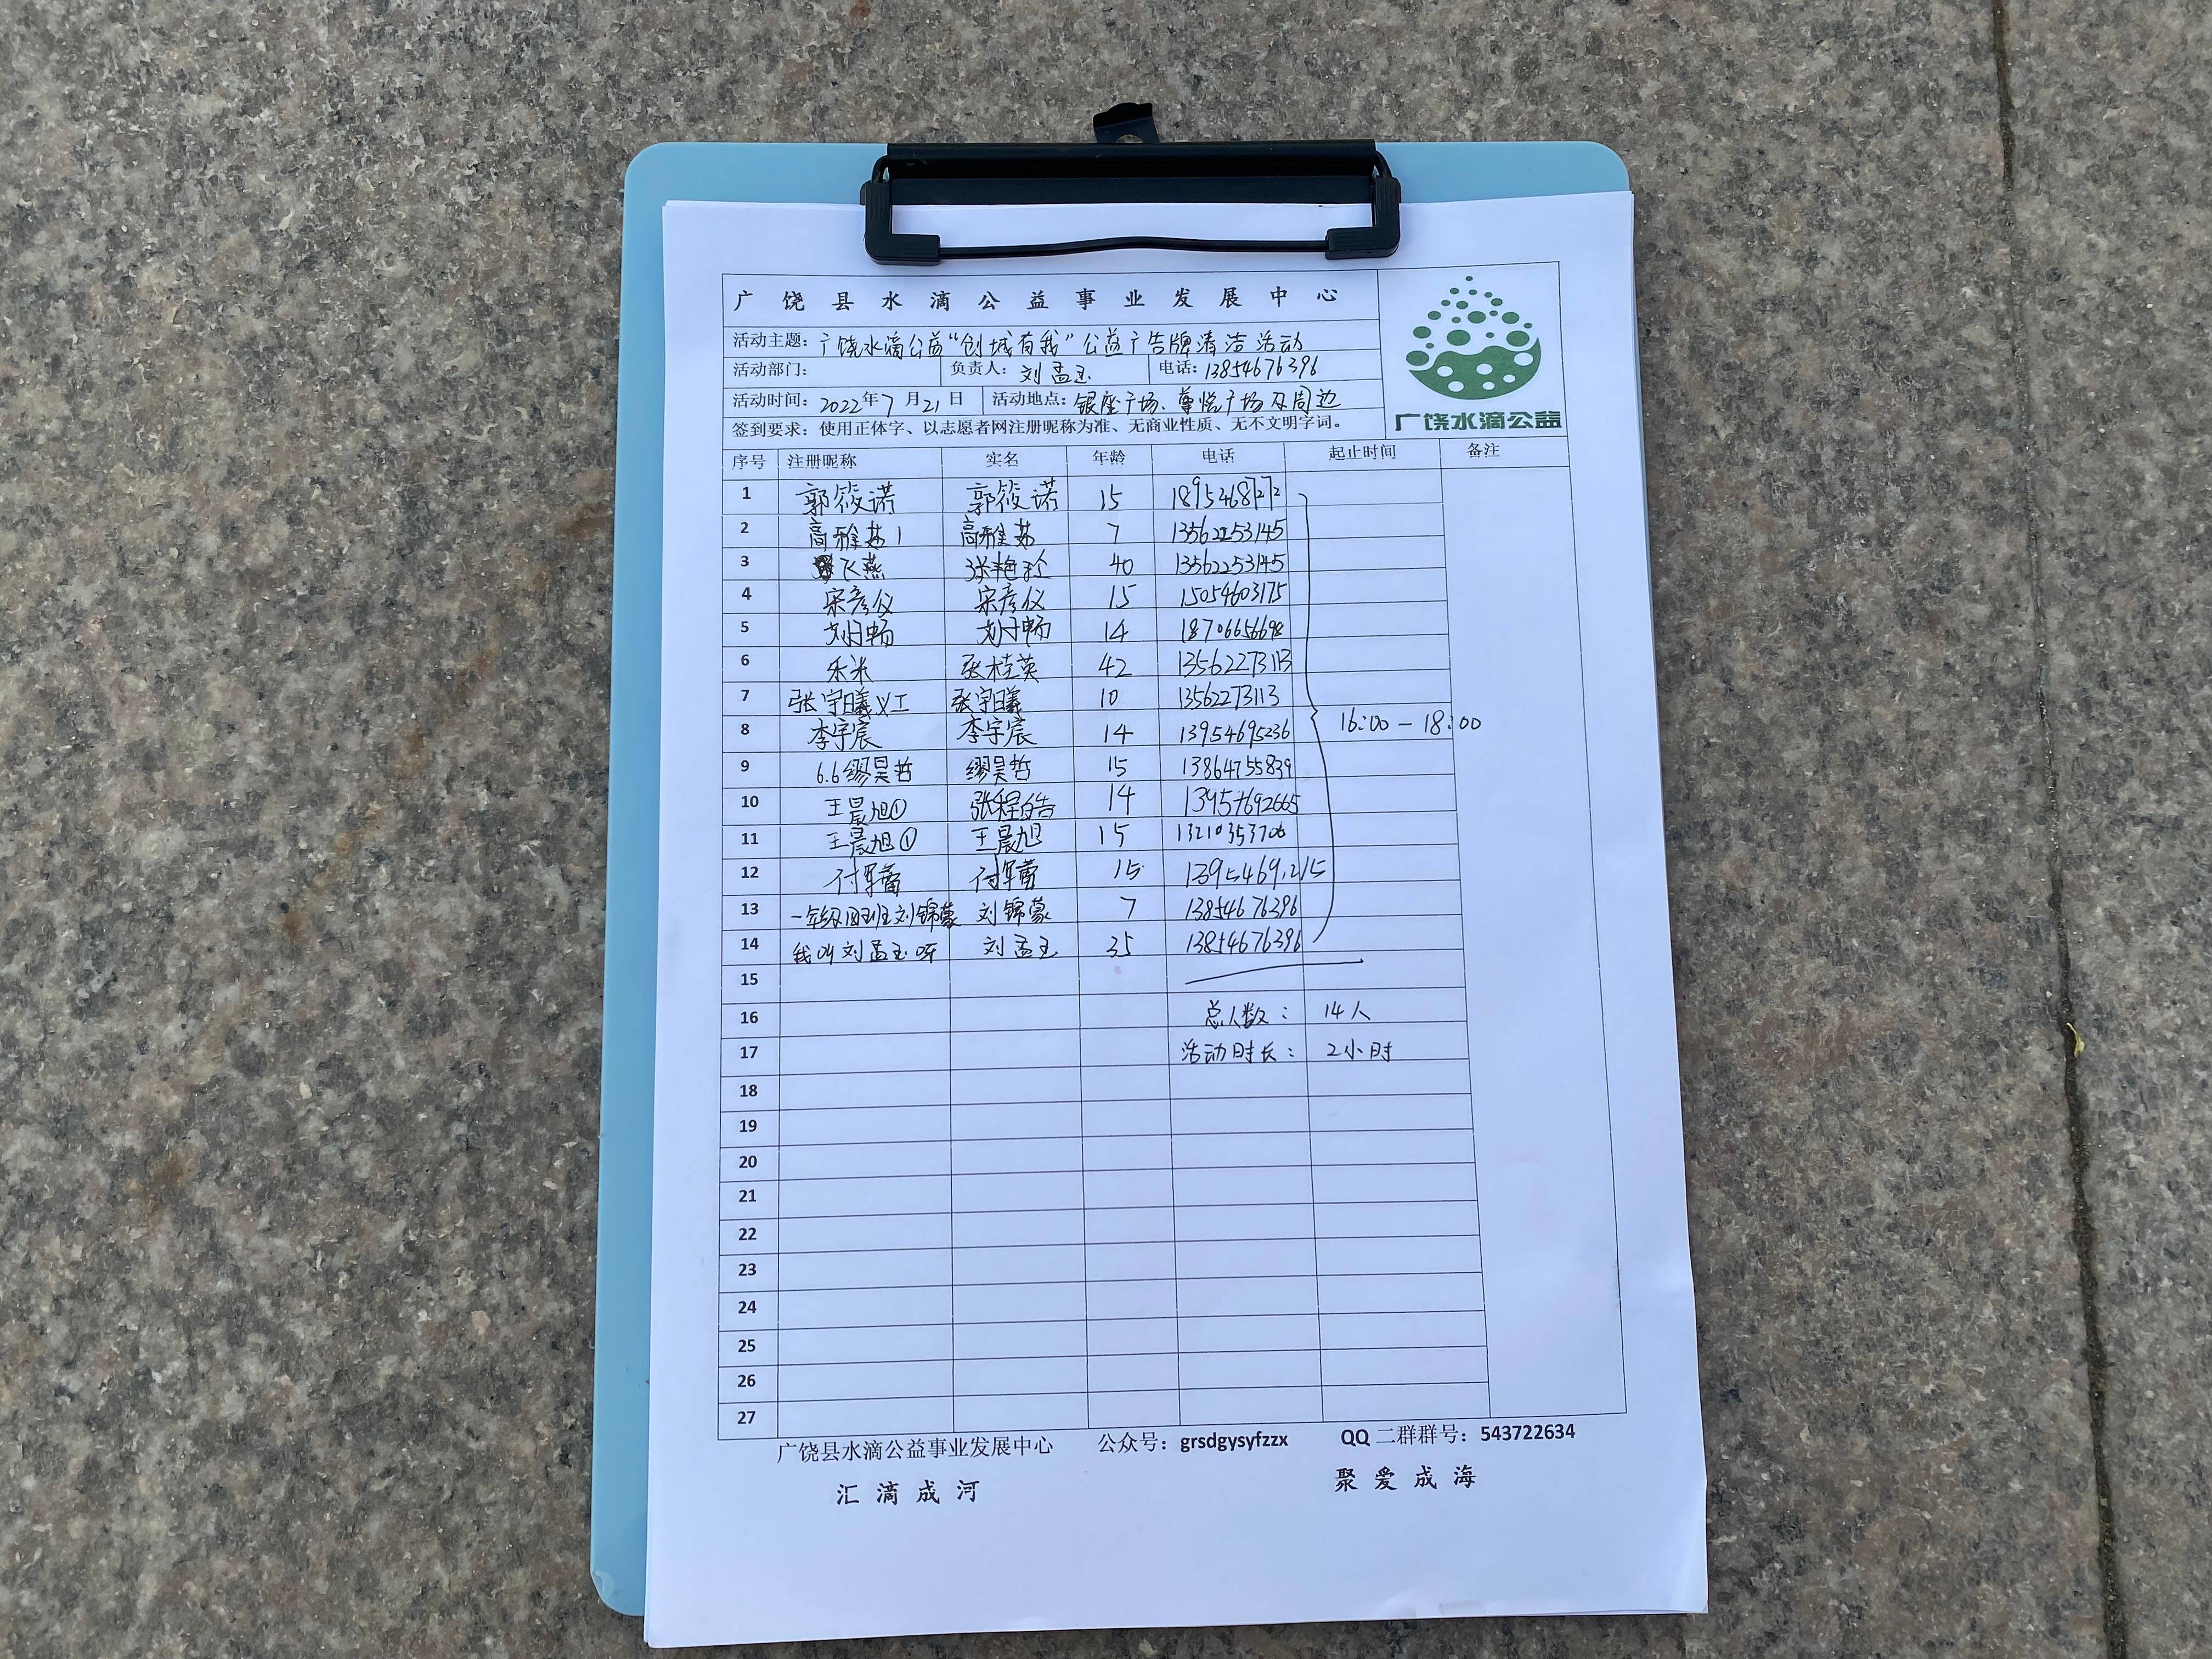 广饶县水滴公益事业发展中心
广饶水滴公益
活动主题：广饶水滴公益“创城有我”公益广告牌清洁活动
活动部门： 负责人：刘孟玉 电话：13854676396
活动时间：2022年7月21日 活动地点：银座广场、尊悦广场及周边
签到要求：使用正体字、以志愿者网注册昵称为准、无商业性质、无不文明字词。
序号 注册昵称 实名 年龄 电话 起止时间 备注
1 郭筱诺 郭筱诺 15 18954687272
2 高雅茹1 高雅茹 7 13562253145
3 飞燕 张艳 40 13562253145
4 宋彦仪 宋彦仪 15 15054603175
5 刘畅 刘畅 14 18706656698
6 禾米 张桂英 42 13562273113
7 张宇曦义工 张宇曦 10 13562273113
8 李宇宸 李宇宸 14 13954695236 16:00-18:00
9 6.6缪昊哲 缪昊哲 15 13864755839
10 王晨旭① 张程皓 14 13954692665
11 王晨旭① 王晨旭 15 13210353706
12 付 付 15 1395469
13 一年级四班刘锦蒙 刘锦蒙 7 13854676396
14 我叫刘孟玉呀 刘孟玉 35 13854676396
15
16 总人数： 14人
17 活动时长： 2小时
18
19
20
21
22
23
24
25
26
27
广饶县水滴公益事业发展中心 公众号：grsdgysyfzzx QQ二群群号：543722634
汇滴成河 聚爱成海